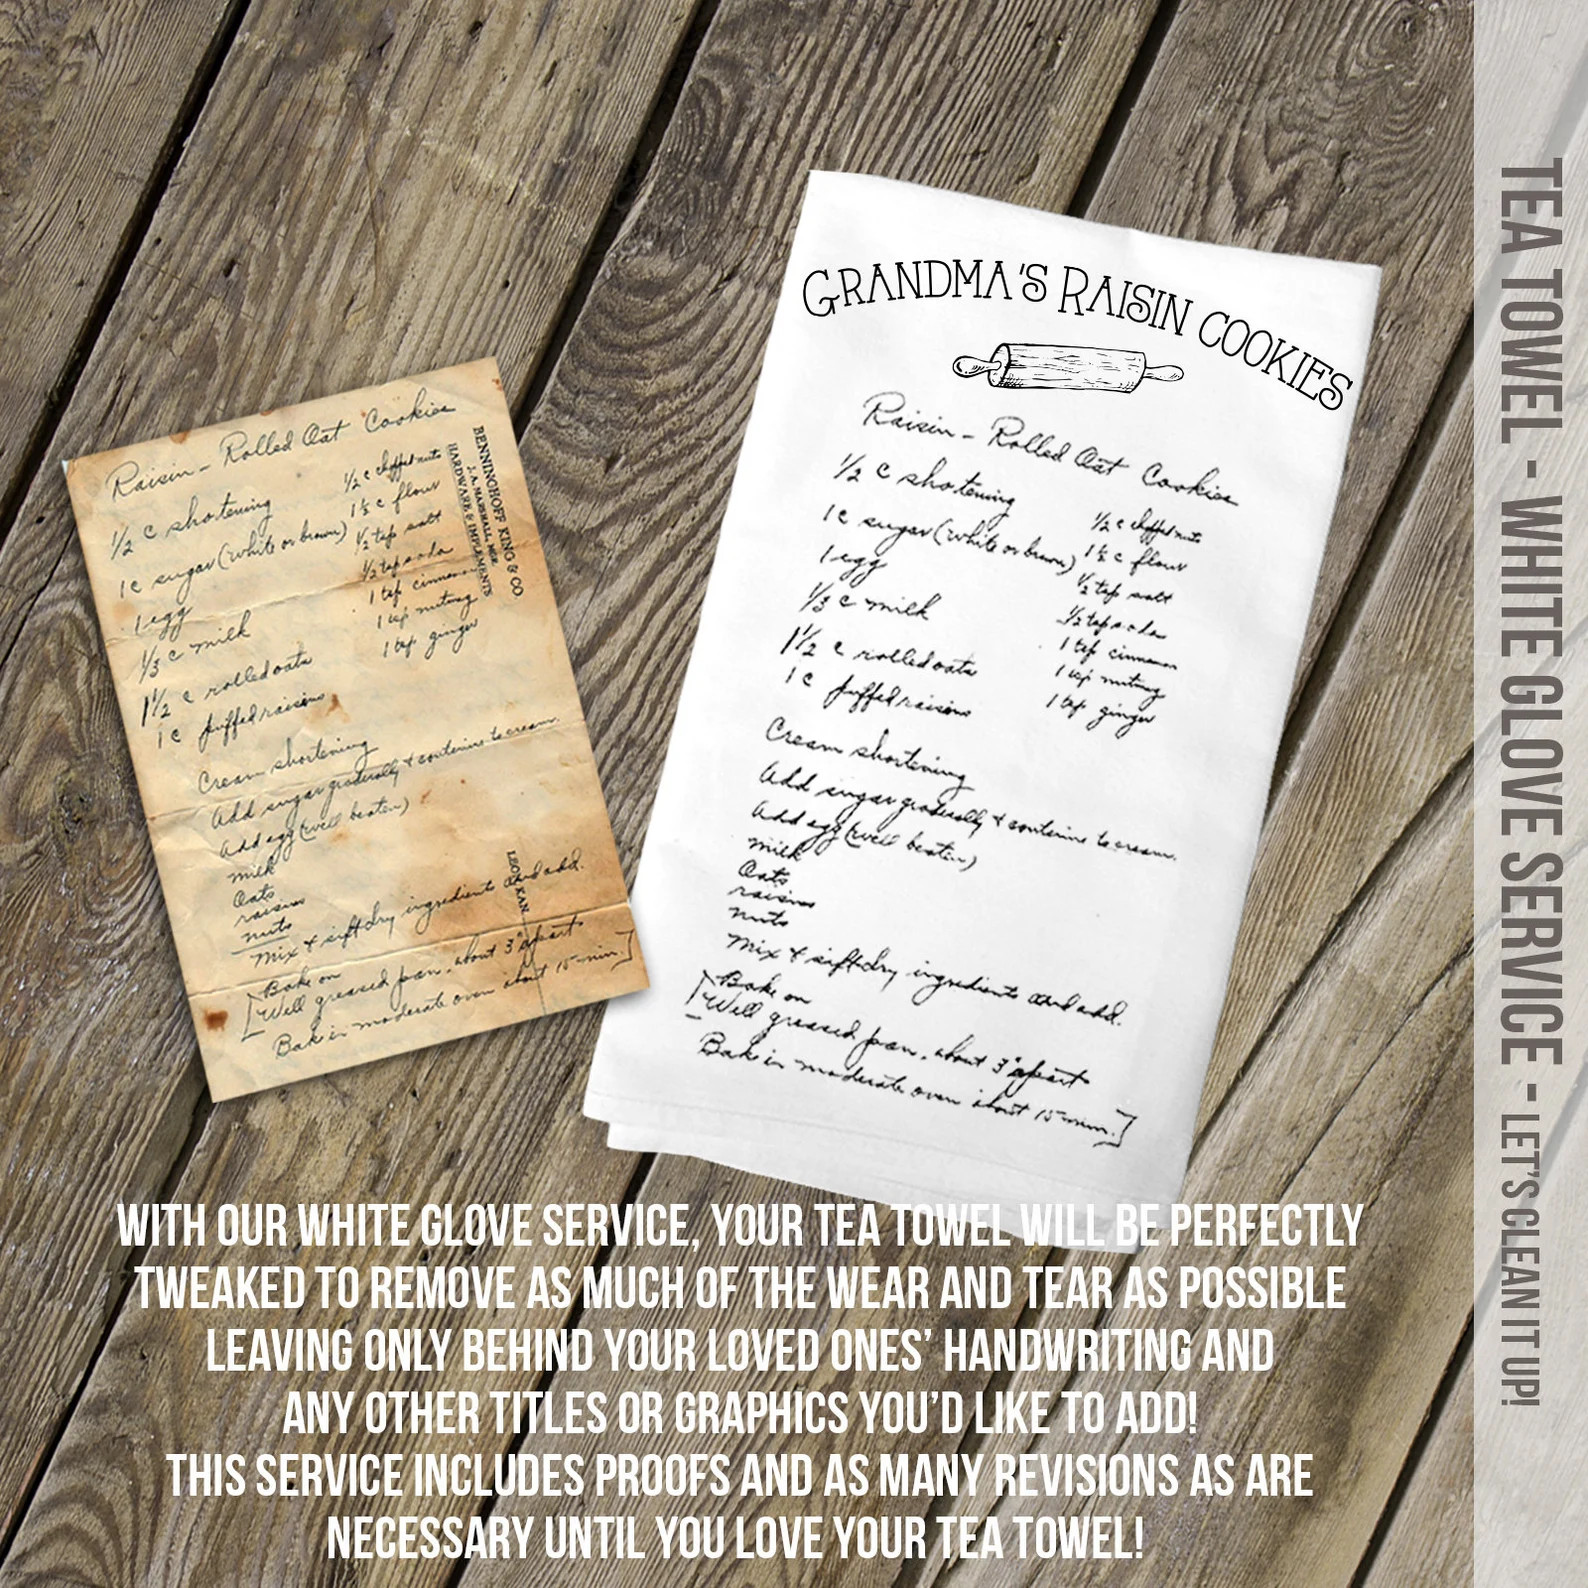 Raisin - Rolled Oat Cookies
1/2 c shortening
1 c sugar (white or brown)
1 egg
1/3 c milk
1 1/2 c rolled oats
1 c puffed raisins
1/2 c chopped nuts
1 1/2 c flour
1/2 tsp salt
1/2 tsp soda
1 tsp cinnamon
1 tsp nutmeg
1 tsp ginger
BENNINGHOFF KING & CO
J. A. MARSHALL, MGR.
HARDWARE & IMPLEMENTS
Cream shortening
Add sugar gradually & contenine to cream.
Add egg (well beaten)
milk
Oats
raisins
nuts
Mix & sift dry ingredients and add.
Bake on
[Well greased pan, about 3" apart
Bake in moderate oven about 15 min.]
KAN.
GRANDMA'S RAISIN COOKIES
Raisin - Rolled Oat Cookies
1/2 c shortening
1 c sugar (white or brown)
1 egg
1/3 c milk
1 1/2 c rolled oats
1 c puffed raisins
1/2 c chopped nuts
1 1/2 c flour
1/2 tsp salt
1/2 tsp soda
1 tsp cinnamon
1 tsp nutmeg
1 tsp ginger
Cream shortening
Add sugar gradually & contenine to cream.
Add egg (well beaten)
milk
Oats
raisins
nuts
Mix & sift dry ingredients and add.
Bake on
[Well greased pan, about 3" apart
Bake in moderate oven about 15 min.]
WITH OUR WHITE GLOVE SERVICE, YOUR TEA TOWEL WILL BE PERFECTLY
TWEAKED TO REMOVE AS MUCH OF THE WEAR AND TEAR AS POSSIBLE
LEAVING ONLY BEHIND YOUR LOVED ONES' HANDWRITING AND
ANY OTHER TITLES OR GRAPHICS YOU'D LIKE TO ADD!
THIS SERVICE INCLUDES PROOFS AND AS MANY REVISIONS AS ARE
NECESSARY UNTIL YOU LOVE YOUR TEA TOWEL!
TEA TOWEL - WHITE GLOVE SERVICE - LET'S CLEAN IT UP!